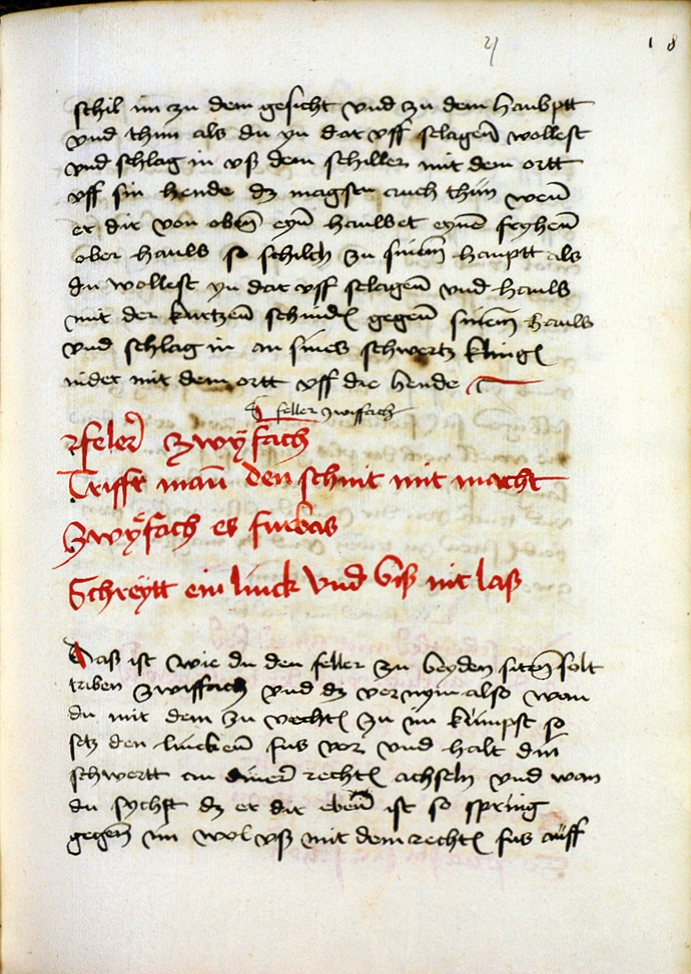 21
18
schil im zu dem gesicht vnd zu dem haubptt
vnd thun als du yn dar vff slagen̄ wollest
vnd schlag in vß dem schiller mit dem ortt
vff sin hende dz magstu auch thün wen̄
er dir von oben̄ eyn̄ hauwet eynē fryhen̄
ober hauw so schilch zu sinem̄ hauptt als
du wollest yn dar vff slagen̄ vnd hauw
mit der kurtzen̄ schnid gegen̄ sinem̄ hauw
vnd schlag in an sines schwertz kling
nider mit dem ortt vff die hende
feller zwiffach
feler zwÿfach
Trifft man̄ den schnit mit macht
Zwÿfach es furbas
Schreytt ein linck vnd biß nit laß
Daß ist wie du den feller zu beyden siten̄ solt
triben zwiffach vnd dz vernym also wan
du mit dem zu vechten zu im kumpst so
setz den lincken̄ fus vor vnd halt din̄
schwertt an diner̄ rechten achseln vnd wan
du sychst dz er dir eben̄ ist so spring
gegen̄ im wol vß mit dem rechten fus auff